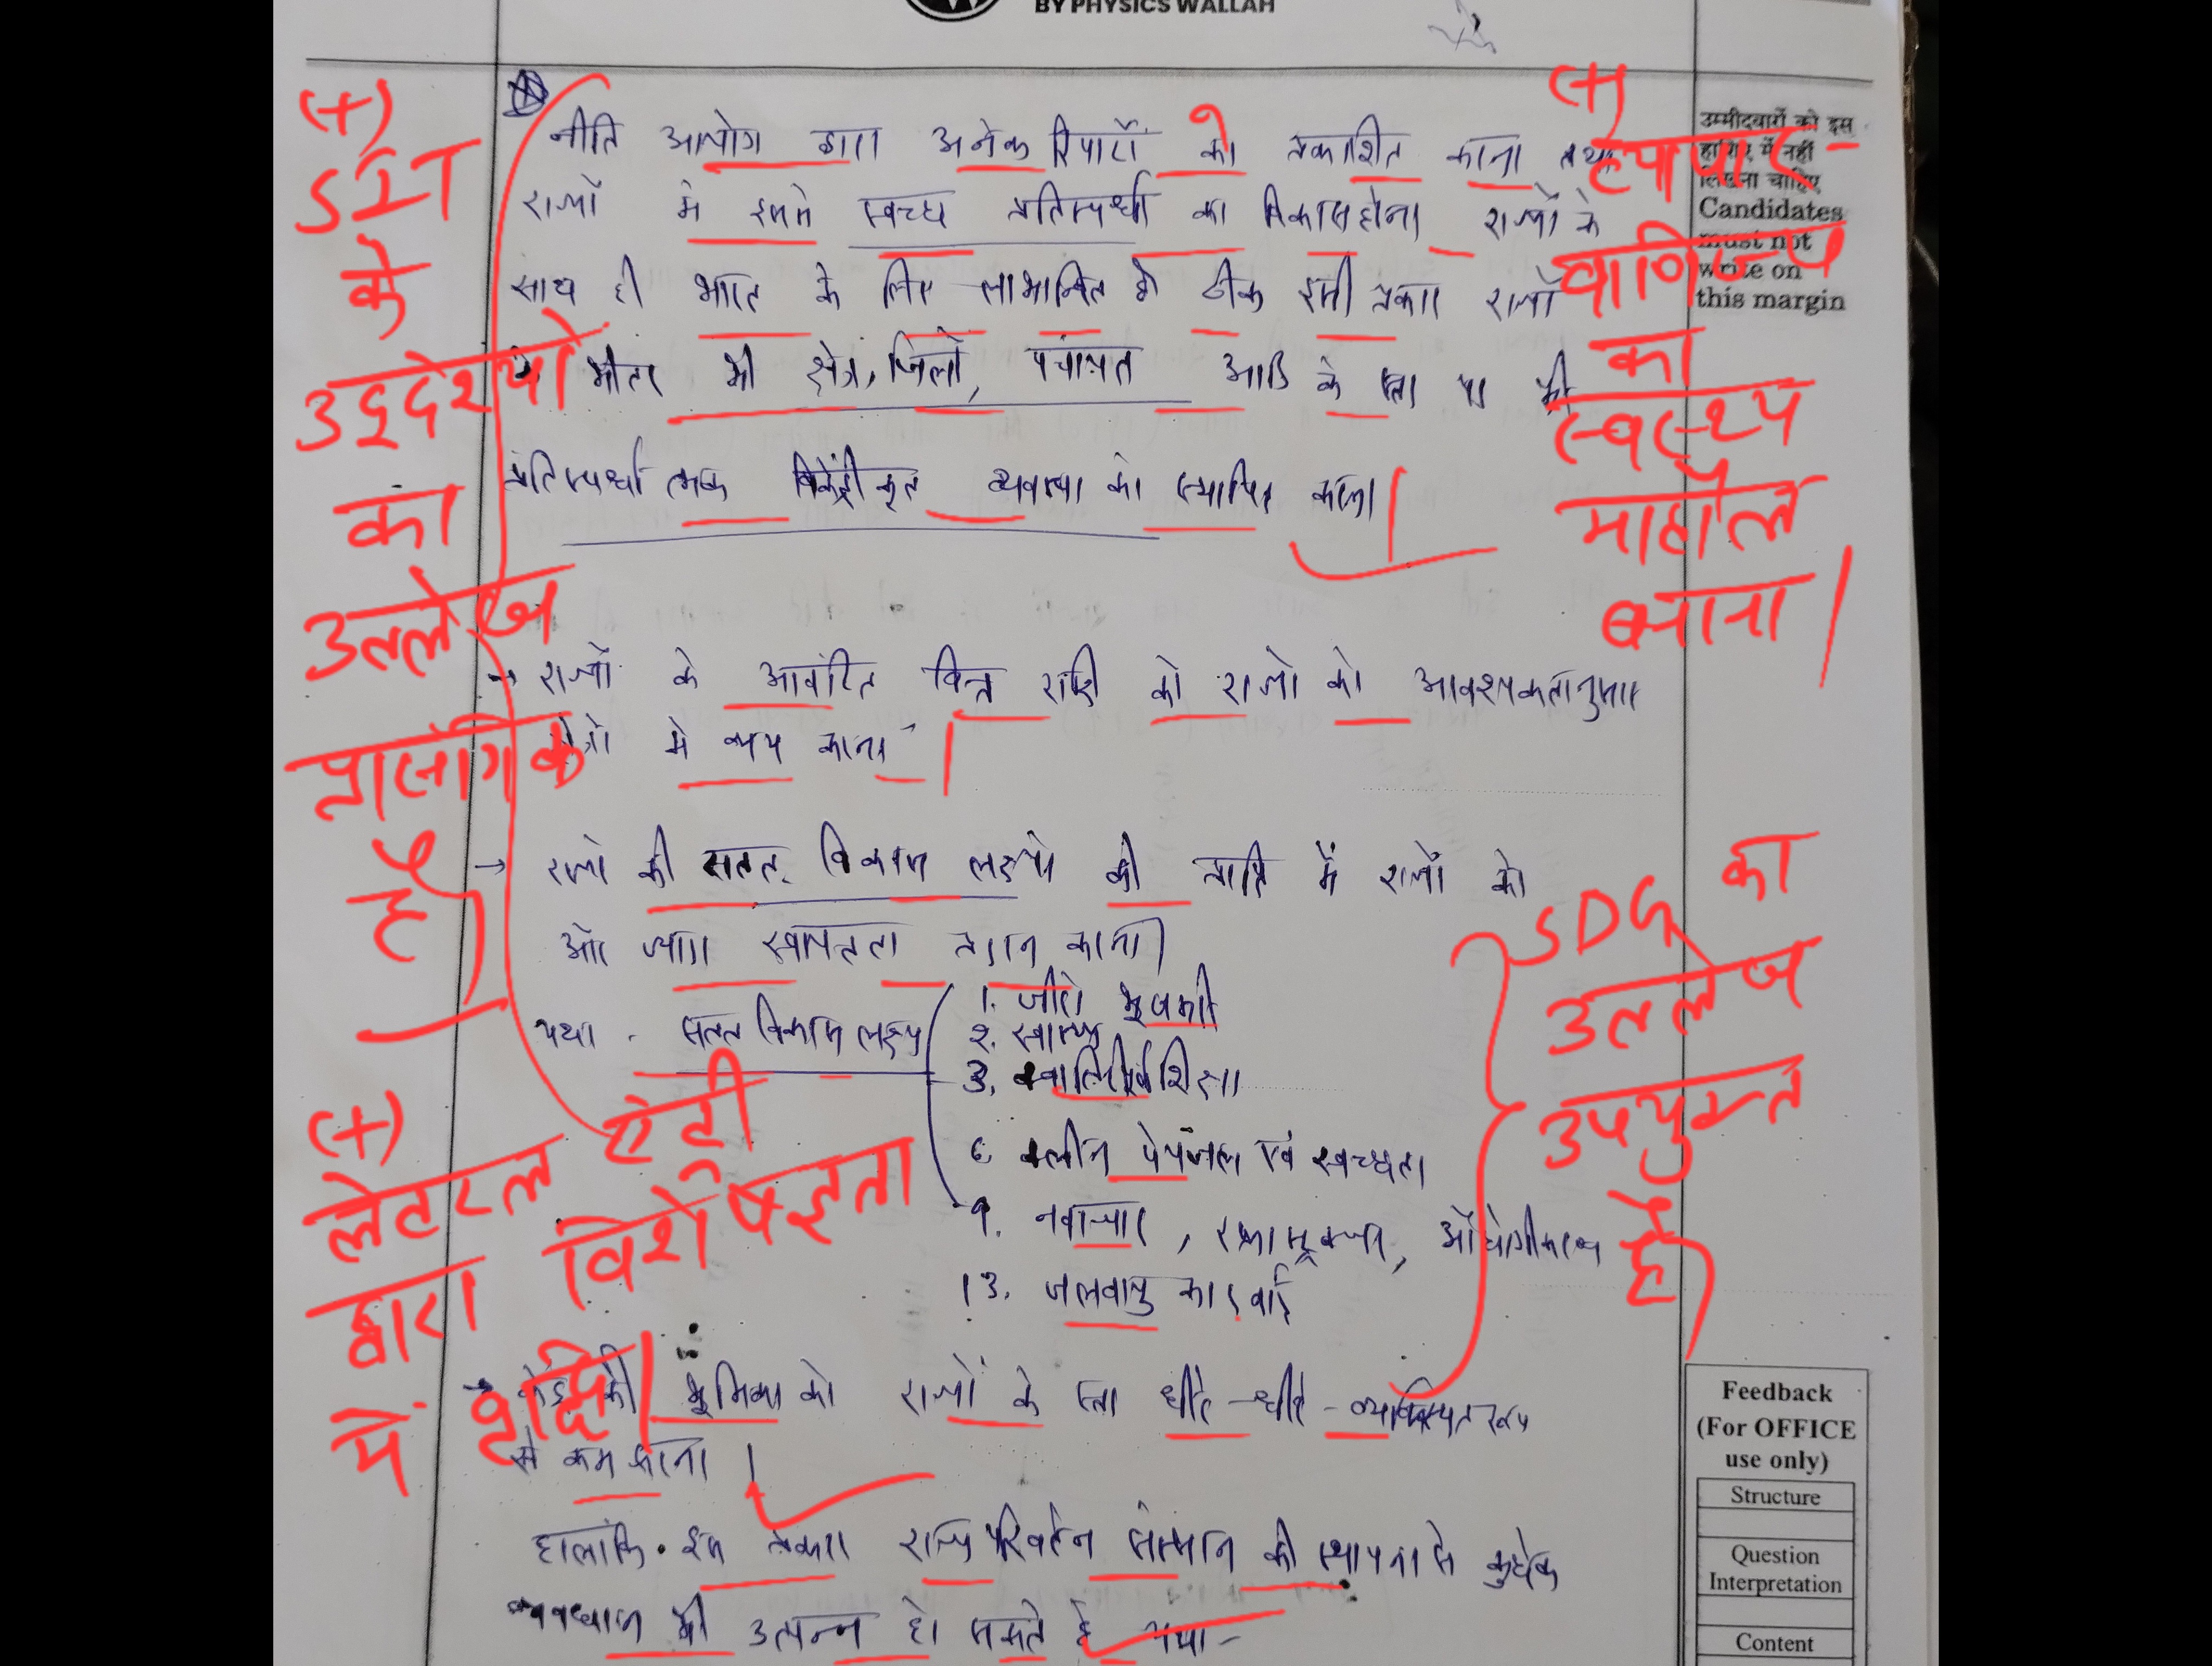 BY PHYSICS WALLAH
नीति आयोग द्वारा अनेक रिपोर्टों को प्रकाशित करना तथा
राज्यों में इससे स्वच्छ प्रतिस्पर्धा का विकास होना राज्यों के
साथ ही भारत के लिए लाभान्वित है ठीक इसी प्रकार राज्यों
के भीतर भी क्षेत्र, जिलों, पंचायत आदि के स्तर पर भी
प्रतिस्पर्धात्मक विकेंद्रीकृत व्यवस्था को स्थापित करना।
→ राज्यों के आवंटित वित्त राशि को राज्यों की आवश्यकतानुसार
क्षेत्रों में व्यय करना।
→ राज्यों की सतत विकास लक्ष्यों की प्राप्ति में राज्यों को
और ज्यादा स्वायत्तता प्रदान करना।
यथा - सतत विकास लक्ष्य
1. जीरो भूखमरी
2. स्वास्थ्य
3. क्वालिटीपूर्ण शिक्षा
6 क्लीन पेयजल एवं स्वच्छता
9. नवाचार, इन्फ्रास्ट्रक्चर, औद्योगीकरण
13. जलवायु कार्रवाई
→ केंद्र की भूमिका को राज्यों के स्तर धीरे-धीरे व्यवस्थित रूप
से कम करना।
हालांकि इस प्रकार राज्य परिवर्तन संस्थान की स्थापना से कुछेक
व्यवधान भी उत्पन्न हो सकते हैं यथा-
(+)
SIT
के
उद्देश्यों
का
उल्लेख
प्रासंगिक
है।
(+)
लेटरल एंट्री
द्वारा विशेषज्ञता
में वृद्धि।
(+)
व्यापार-
वाणिज्य
का
स्वस्थ्य
माहौल
बनाना।
SDG का
उल्लेख
उपयुक्त
है।
उम्मीदवारों को इस
हाशिए में नहीं
लिखना चाहिए
Candidates
must not
write on
this margin
Feedback
(For OFFICE
use only)
Structure
Question
Interpretation
Content